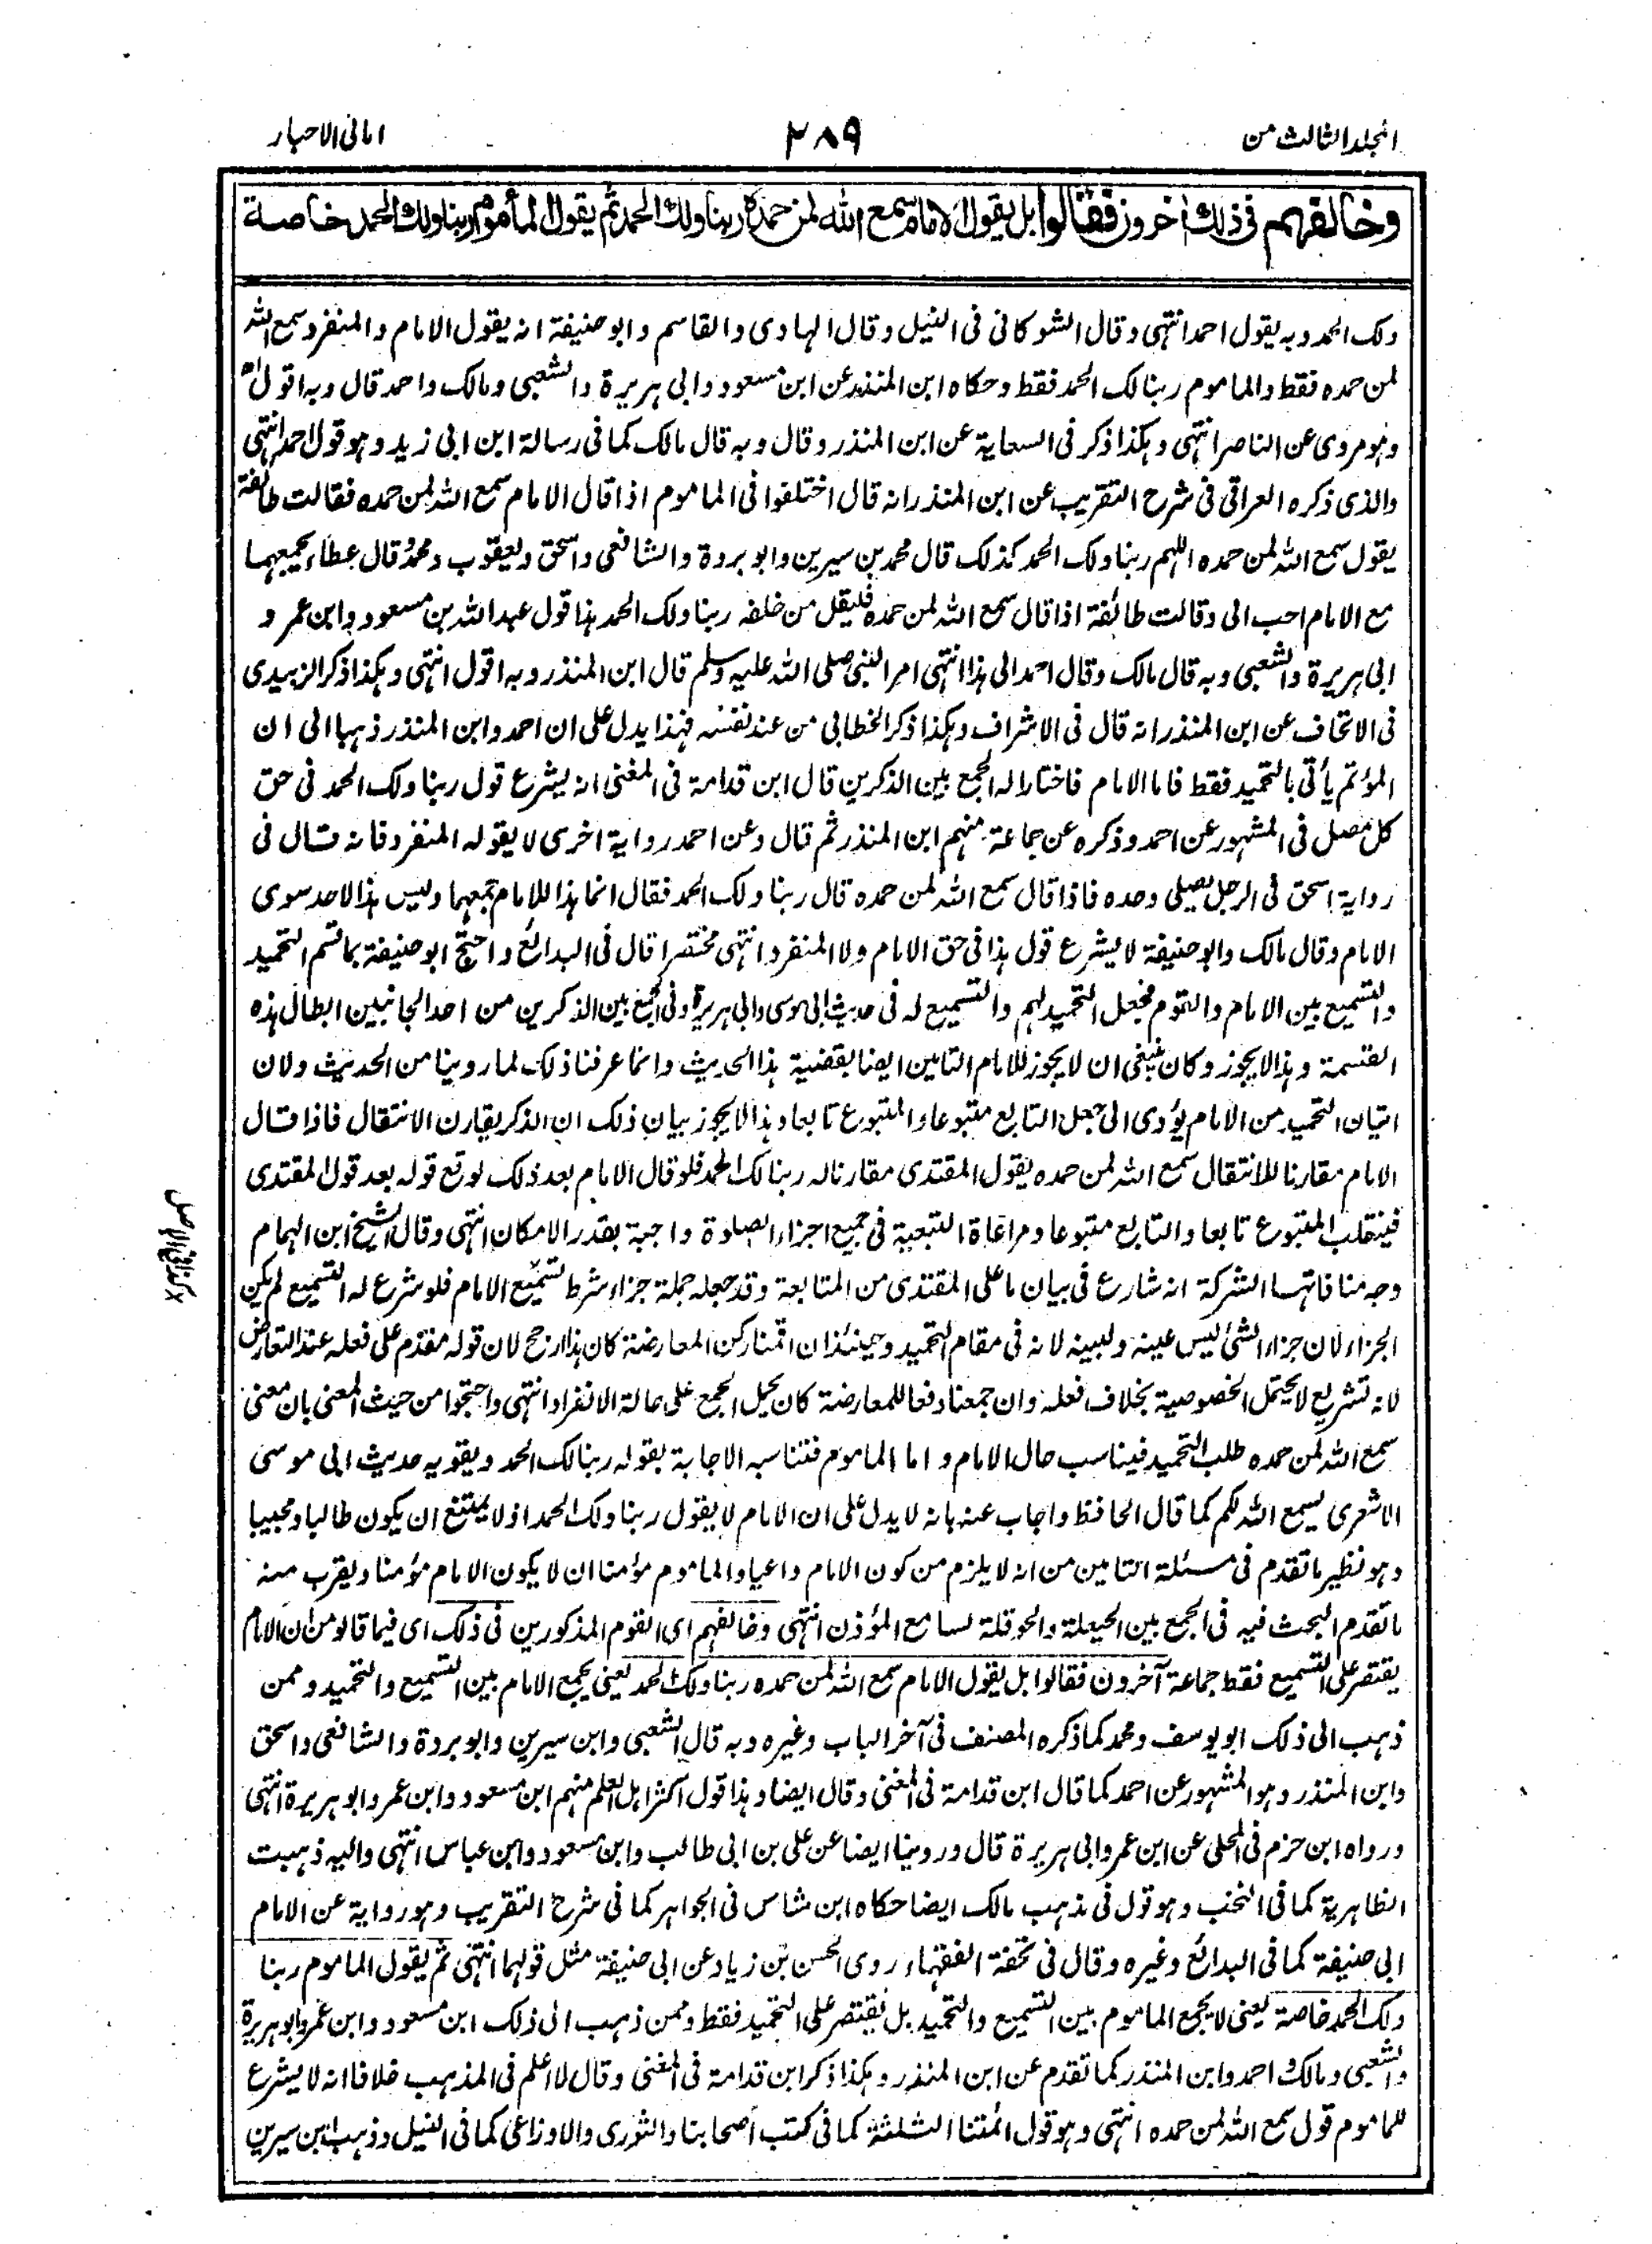 المجلد الثالث من
۲۸۹
امانی الاحبار
وخالفهم فی ذلك آخرون فقالوا بل یقول الامام سمع الله لمن حمده ربنا ولك الحمد ثم یقول المأموم ربنا ولك الحمد خاصة
ولک الحمد وبه یقول احمد انتهی وقال الشوکانی فی النیل وقال الهادی والقاسم وابوحنیفة انه یقول الامام والمنفرد سمع الله
لمن حمده فقط والماموم ربنا لک الحمد فقط وحکاه ابن المنذر عن ابن مسعود وابی هریرة والشعبی ومالک واحمد قال وبه اقول
وهو مروی عن الناصر انتهی وهکذا ذکر فی السعایة عن ابن المنذر وقال وبه قال مالک کما فی رسالة ابن ابی زید وهو قول احمد انتهی
والذی ذکره العراقی فی شرح التقریب عن ابن المنذر انه قال اختلفوا فی الماموم اذا قال الامام سمع الله لمن حمده فقالت طائفة
یقول سمع الله لمن حمده اللهم ربنا ولک الحمد کذلک قال محمد بن سیرین وابو بردة والشافعی واسحق ویعقوب ومحمد قال عطاء یجمعهما
مع الامام احب الی وقالت طائفة اذا قال سمع الله لمن حمده فلیقل من خلفه ربنا ولک الحمد هذا قول عبدالله بن مسعود وابن عمر و
ابی هریرة والشعبی وبه قال مالک وقال احمد الی هذا انتهی امر النبی صلی الله علیه وسلم قال ابن المنذر وبه اقول انتهی وهکذا ذکر الزبیدی
فی الاتحاف عن ابن المنذر انه قال فی الاشراف وهکذا ذکر الخطابی من عند نفسه فهذا یدل علی ان احمد وابن المنذر ذهبا الی ان
المؤتم یأتی بالتحمید فقط فاما الامام فاختارا له الجمع بین الذکرین قال ابن قدامة فی المغنی انه یشرع قول ربنا ولک الحمد فی حق
کل مصل فی المشهور عن احمد وذکره عن جماعة منهم ابن المنذر ثم قال وعن احمد روایة اخری لا یقوله المنفرد فانه قال فی
روایة اسحق فی الرجل یصلی وحده فاذا قال سمع الله لمن حمده قال ربنا ولک الحمد فقال انما هذا للامام یجمعهما ولیس هذا لاحد سوی
الامام وقال مالک وابو حنیفة لا یشرع قول هذا فی حق الامام ولا المنفرد انتهی مختصرا قال فی البدائع واحتج ابوحنیفة بما قسم التحمید
والتسمیع بین الامام والقوم فجعل التحمید لهم والتسمیع له فی حدیث ابی موسی وابی هریرة وفی الجمع بین الذکرین من احد الجانبین ابطال هذه
القسمة وهذا لا یجوز وکان ینبغی ان لا یجوز للامام التامین ایضا بقضیة هذا الحدیث وانما عرفنا ذلک لما روینا من الحدیث ولان
اتیان التحمید من الامام یؤدی الی جعل التابع متبوعا والمتبوع تابعا وهذا لا یجوز بیان ذلک ان الذکر یقارن الانتقال فاذا قال
الامام مقارنا للانتقال سمع الله لمن حمده یقول المقتدی مقارنا له ربنا لک الحمد فلو قال الامام بعد ذلک لوقع قوله بعد قول المقتدی
فینقلب المتبوع تابعا والتابع متبوعا ومراعاة التبعیة فی جمیع اجزاء الصلوة واجبة بقدر الامکان انتهی وقال الشیخ ابن الهمام
وجه منافاتها الشرکة انه شارع فی بیان ما علی المقتدی من المتابعة وقد جعله جملة جزاء شرط تسمیع الامام فلو شرع له التسمیع لم یکن
الجزاء لان جزاء الشئ لیس عینه ولیبینه لانه فی مقام التحمید وحینئذ ان اقمنا رکن المعارضة کان هذا ارجح لان قوله مقدم علی فعله عند التعارض
لانه تشریع لا یحتمل الخصوصیة بخلاف فعله وان جمعنا دفعا للمعارضة کان یحیل الجمع علی حالة الانفراد انتهی واحتجوا من حیث المعنی بان معنی
سمع الله لمن حمده طلب التحمید فیناسب حال الامام واما الماموم فتناسبه الاجابة بقوله ربنا لک الحمد ویقویه حدیث ابی موسی
الاشعری یسمع الله لکم کما قال الحافظ واجاب عنه بانه لا یدل علی ان الامام لا یقول ربنا ولک الحمد اذ لا یمتنع ان یکون طالبا ومجیبا
وهو نظیر ما تقدم فی مسئلة التامین من انه لا یلزم من کون الامام داعیا والماموم مؤمنا ان لا یکون الامام مؤمنا ویقرب منه
ما تقدم البحث فیه فی الجمع بین الحیعلة والحوقلة لسامع المؤذن انتهی وخالفهم ای القوم المذکورین فی ذلک ای فیما قالو من ان الامام
یقتصر علی التسمیع فقط جماعة آخرون فقالوا بل یقول الامام سمع الله لمن حمده ربنا ولک الحمد یعنی یجمع الامام بین التسمیع والتحمید وممن
ذهب الی ذلک ابو یوسف ومحمد کما ذکره المصنف فی آخر الباب وغیره وبه قال الشعبی وابن سیرین وابو بردة والشافعی واسحق
وابن المنذر وهو المشهور عن احمد کما قال ابن قدامة فی المغنی وقال ایضا وهذا قول اکثر اهل العلم منهم ابن مسعود وابن عمر وابو هریرة انتهی
ورواه ابن حزم فی المحلی عن ابن عمر وابی هریرة قال وروینا ایضا عن علی بن ابی طالب وابن مسعود وابن عباس انتهی والیه ذهبت
الظاهریة کما فی النخب وهو قول فی مذهب مالک ایضا حکاه ابن شاس فی الجواهر کما فی شرح التقریب وهو روایة عن الامام
ابی حنیفة کما فی البدائع وغیره وقال فی تحفة الفقهاء روی الحسن بن زیاد عن ابی حنیفة مثل قولهما انتهی ثم یقول الماموم ربنا
ولک الحمد خاصة یعنی لا یجمع الماموم بین التسمیع والتحمید بل یقتصر علی التحمید فقط وممن ذهب الی ذلک ابن مسعود وابن عمر وابو هریرة
والشعبی ومالک واحمد وابن المنذر کما تقدم عن ابن المنذر وهکذا ذکر ابن قدامة فی المغنی وقال لا اعلم فی المذهب خلافا انه لا یشرع
للماموم قول سمع الله لمن حمده انتهی وهو قول ائمتنا الثلثة کما فی کتب اصحابنا والثوری والاوزاعی کما فی النیل وذهب ابن سیرین
× کذا فی الاصل